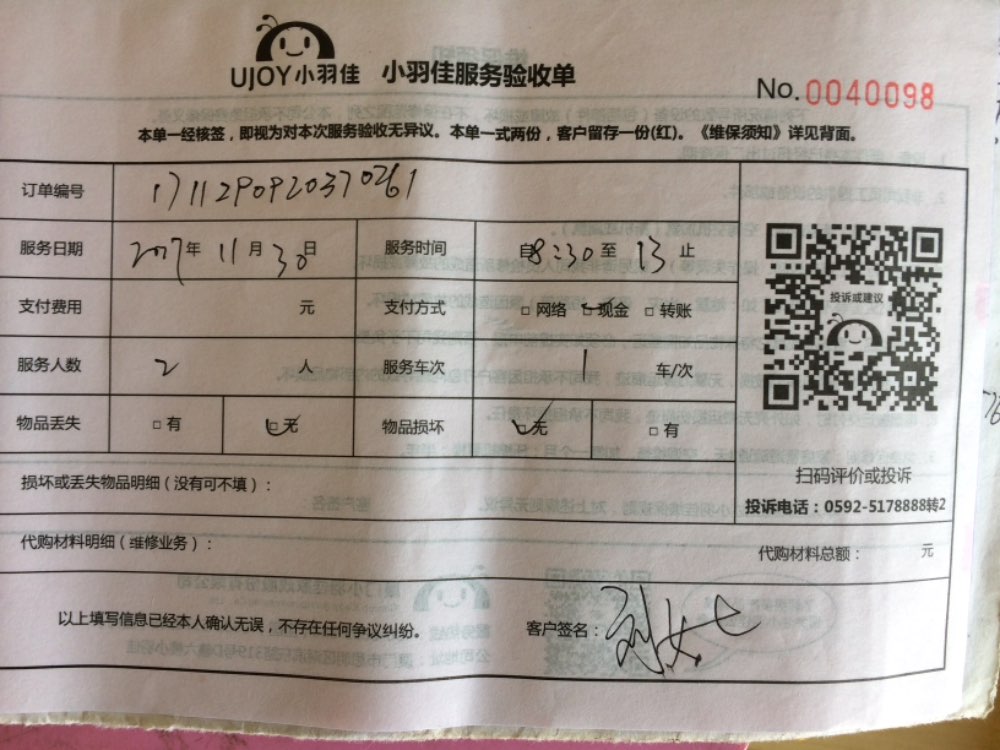 UJOY小羽佳 小羽佳服务验收单
No.0040098
本单一经核签，即视为对本次服务验收无异议。本单一式两份，客户留存一份(红)。《维保须知》详见背面。
订单编号 1711290920370261
服务日期 2017年 11月 30日 服务时间 自8:30 至 13 止
支付费用 元 支付方式 □网络 □现金 □转账
服务人数 2 人 服务车次 1 车/次
物品丢失 □有 □无 物品损坏 □无 □有
投诉或建议
扫码评价或投诉
投诉电话：0592-5178888转2
损坏或丢失物品明细（没有可不填）：
代购材料明细（维修业务）： 代购材料总额： 元
以上填写信息已经本人确认无误，不存在任何争议纠纷。 客户签名：